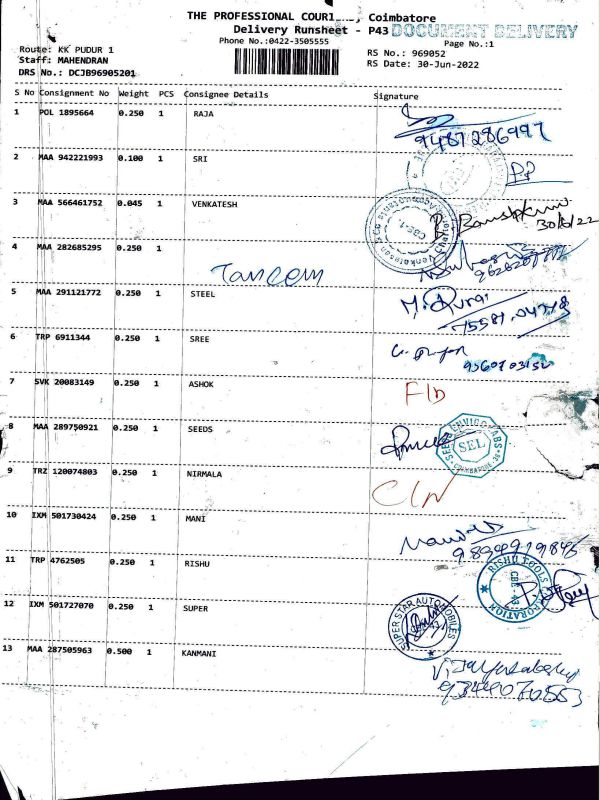 THE PROFESSIONAL COURI , Coimbatore
Delivery Runsheet - P43 DOCUMENT DELIVERY
Phone No.:0422-3505555
Page No.:1
Route: KK PUDUR 1
RS No.: 969052
Staff: MAHENDRAN
RS Date: 30-Jun-2022
DRS No.: DCJB96905201
S No Consignment No Weight PCS Consignee Details Signature
1 POL 1895664 0.250 1 RAJA
9487286997
2 MAA 942221993 0.100 1 SRI
P.P
3 MAA 566461752 0.045 1 VENKATESH
30/6/22
4 MAA 282685295 0.250 1
Tancem
5 MAA 291121772 0.250 1 STEEL
M. Durai
75581.04778
6 TRP 6911344 0.250 1 SREE
7 SVK 20083149 0.250 1 ASHOK
8 MAA 289750921 0.250 1 SEEDS
SEL
COIMBATORE
9 TRZ 120074803 0.250 1 NIRMALA
10 IXM 501730424 0.250 1 MANI
11 TRP 4762505 0.250 1 RISHU
RISHU TOOLS CORPORATION
CBE 43
12 IXM 501727070 0.250 1 SUPER
SUPER STAR AUTOMOBILES
13 MAA 287505963 0.500 1 KANMANI
9344070553